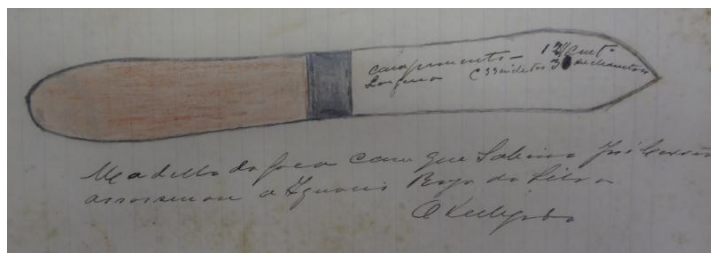 comprimento - 12 cent.
Largura
Modello da faca com que Sabino José
assassinou a Ignacio Roza da Silva
O Delegado